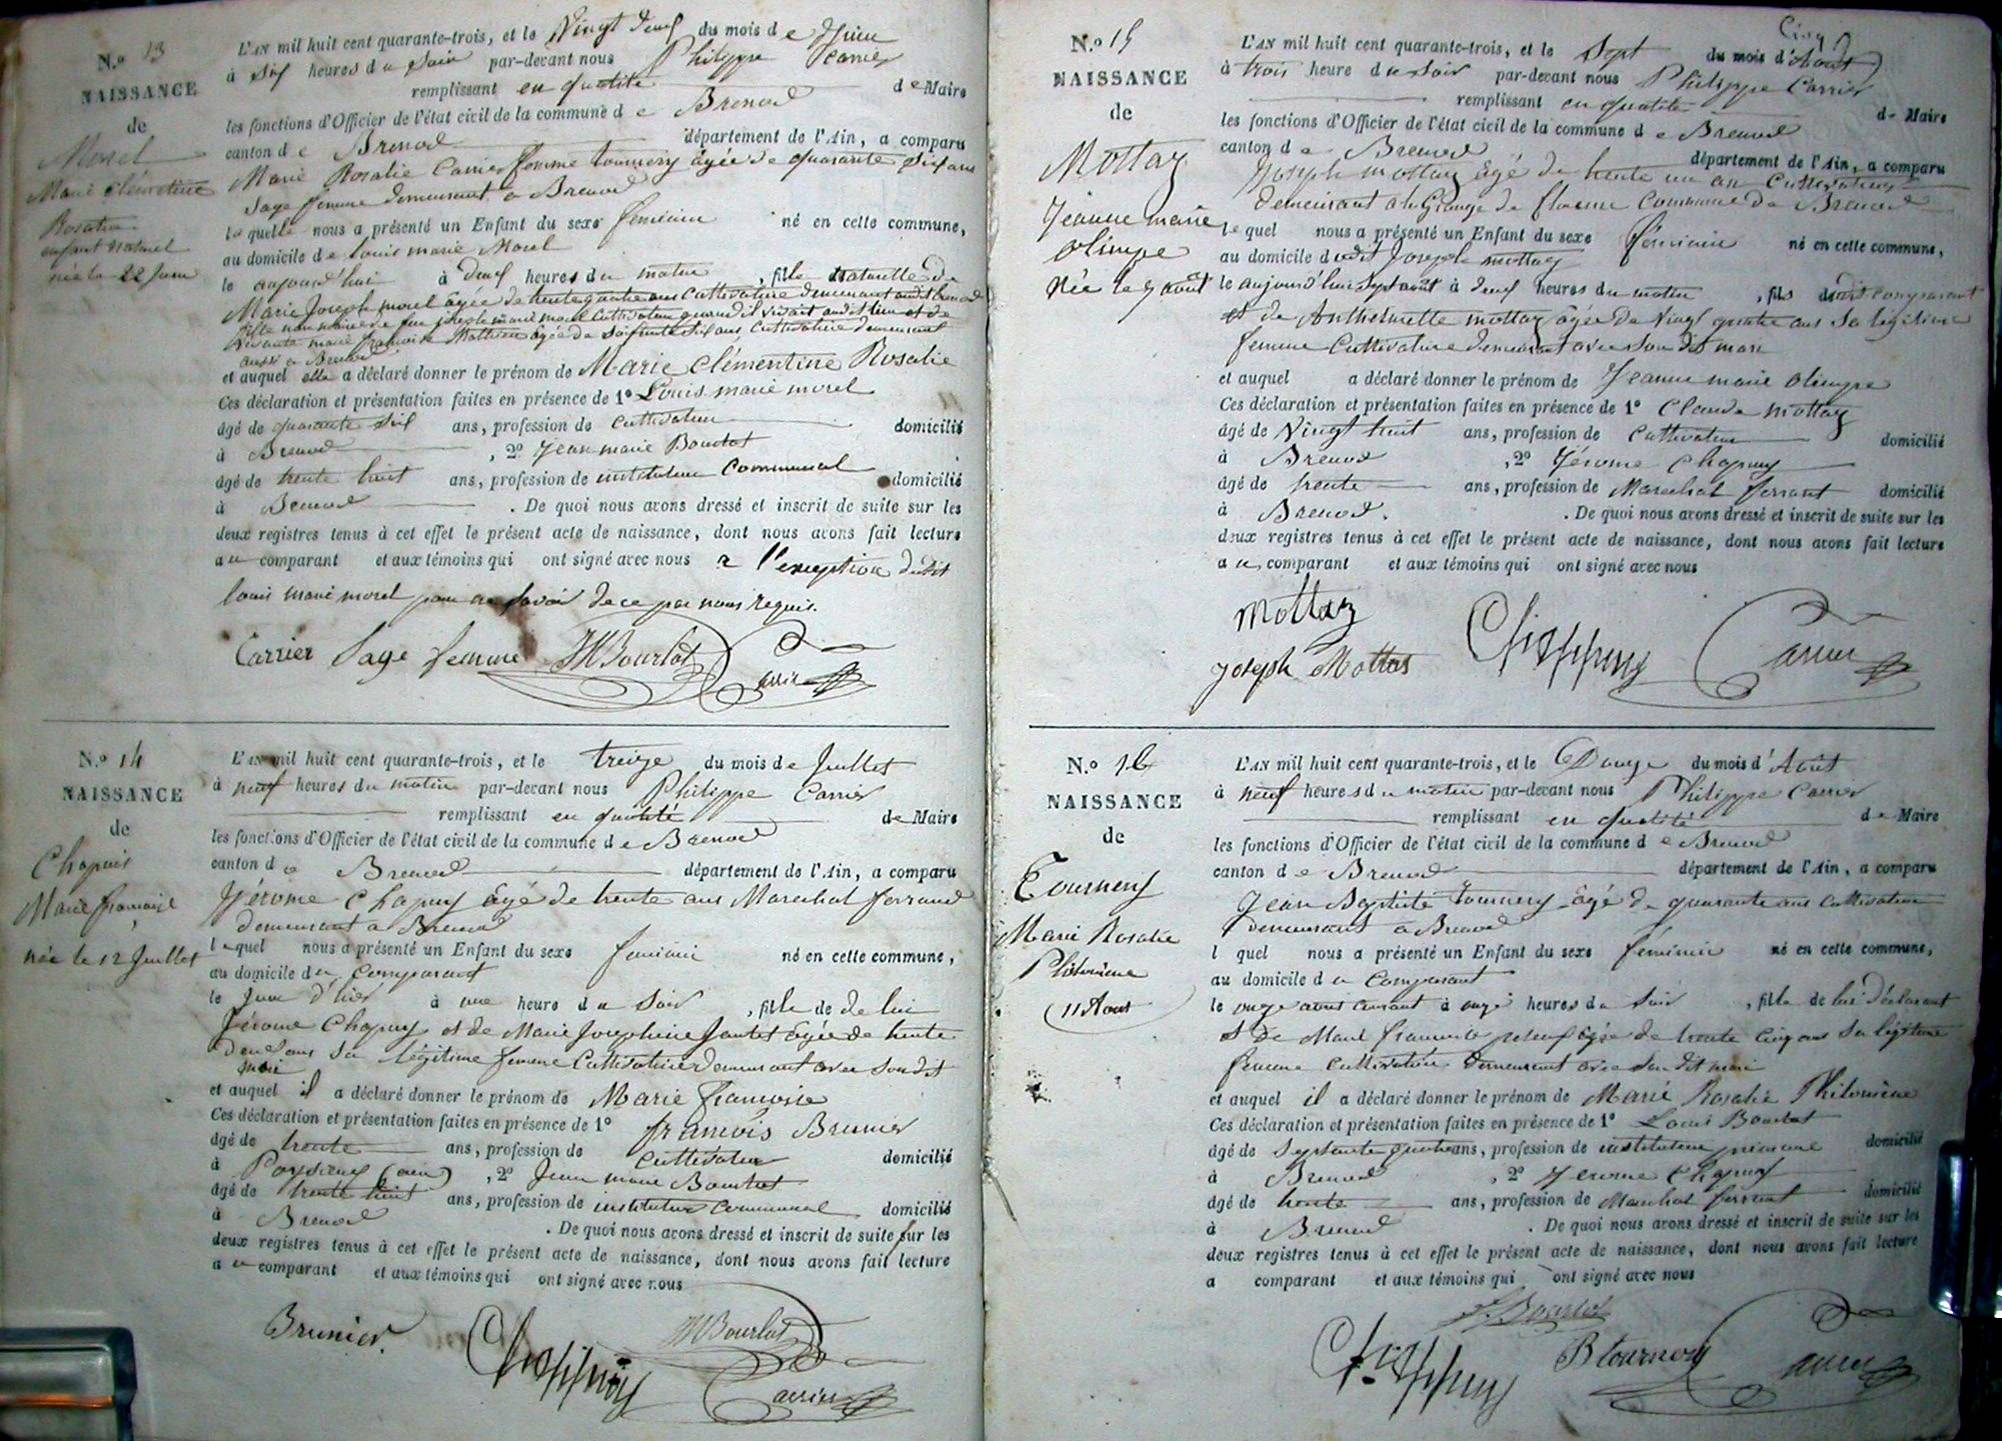 N.º 13
NAISSANCE
de
Morel
Marie Clémentine
Rosalie
enfant naturel
née le 22 Juin
L'AN mil huit cent quarante-trois, et le Vingt deux du mois de Juin
à six heures du soir par-devant nous Philippe Carrier
remplissant en qualité de Maire
les fonctions d'Officier de l'état civil de la commune de Brenod
canton de Brenod département de l'Ain, a comparu
Marie Rosalie Carrier femme tournery âgée de quarante six ans
Sage femme demeurant à Brenod
laquelle nous a présenté un Enfant du sexe feminin né en cette commune,
au domicile de Louis marie Morel
le aujourd'hui à deux heures du matin , fille naturelle de
Marie Joseph morel âgée de trente quatre ans Cultivatrice demeurant audit brenod
fille non mariée de feu joseph marie morel Cultivateur quand il vivait audit lieu et de
vivante marie françoise Mathieu âgée de soixante six ans Cultivatrice demeurant
aussi à Brenod
et auquel elle a déclaré donner le prénom de Marie Clémentine Rosalie
Ces déclaration et présentation faites en présence de 1º Louis marie morel
âgé de quarante six ans, profession de Cultivateur domicilié
à Brenod , 2º Jean marie Bourlot
âgé de trente huit ans, profession de instituteur Communal domicilié
à Brenod . De quoi nous avons dressé et inscrit de suite sur les
deux registres tenus à cet effet le présent acte de naissance, dont nous avons fait lecture
au comparant et aux témoins qui ont signé avec nous a l'exception dudit
louis marie morel pour ne savoir de ce par nous requis.
Carrier Sage femme JM Bourlot Carrier
N.º 14
NAISSANCE
de
Chapuis
Marie françoise
née le 12 Juillet
L'AN mil huit cent quarante-trois, et le treize du mois de Juillet
à neuf heures du matin par-devant nous Philippe Carrier
remplissant en qualité de Maire
les fonctions d'Officier de l'état civil de la commune de Brenod
canton de Brenod département de l'Ain, a comparu
Jérome Chapuy âgé de trente ans Marechal ferrand
demeurant a Brenod
lequel nous a présenté un Enfant du sexe feminin né en cette commune,
au domicile du Comparant
le jour d'hier à une heure du Soir , fille de de lui
Jérome Chapuy et de Marie Josephine Jantet âgée de trente
deux ans sa légitime femme Cultivatrice demeurant avec son dit
mari
et auquel il a déclaré donner le prénom de Marie françoise
Ces déclaration et présentation faites en présence de 1º françois Brunier
âgé de trente ans, profession de Cultivateur domicilié
à (ain) , 2º Jean marie Bourlot
âgé de trente huit ans, profession de instituteur Communal domicilié
à Brenod . De quoi nous avons dressé et inscrit de suite sur les
deux registres tenus à cet effet le présent acte de naissance, dont nous avons fait lecture
au comparant et aux témoins qui ont signé avec nous
Brunier. Chappuy JM Bourlot Carrier
N.º 15
NAISSANCE
de
Mottaz
Jeanne marie
Olimpe
Née le 7 août
Cinq
L'AN mil huit cent quarante-trois, et le Sept du mois d'Aout
à trois heure du soir par-devant nous Philippe Carrier
remplissant en qualité de Maire
les fonctions d'Officier de l'état civil de la commune de Brenod
canton de Brenod département de l'Ain, a comparu
Joseph mottaz âgé de trente un an Cultivateur
demeurant a la Grange de Commune de Brenod
lequel nous a présenté un Enfant du sexe féminin né en cette commune,
au domicile dudit Joseph mottaz
le aujourd'hui sept août à deux heures du matin , fils dudit comparant
et de Anthelmette mottaz âgée de Vingt quatre ans Sa légitime
femme Cultivatrice demeurant avec son dit mari
et auquel a déclaré donner le prénom de Jeanne marie Olimpe
Ces déclaration et présentation faites en présence de 1º Claude Mottaz
âgé de Vingt huit ans, profession de Cultivateur domicilié
à Brenod , 2º Jérome Chapuy
âgé de trente ans, profession de Marechal ferrant domicilié
à Brenod. . De quoi nous avons dressé et inscrit de suite sur les
deux registres tenus à cet effet le présent acte de naissance, dont nous avons fait lecture
au comparant et aux témoins qui ont signé avec nous
Mottaz
Joseph Mottas Chappuy Carrier
N.º 16
NAISSANCE
de
Tournery
Marie Rosalie
Philomène
11 Aout
L'AN mil huit cent quarante-trois, et le Douze du mois d'Août
à neuf heures du matin par-devant nous Philippe Carrier
remplissant en qualité de Maire
les fonctions d'Officier de l'état civil de la commune de Brenod
canton de Brenod département de l'Ain, a comparu
Jean Baptiste Tournery âgé de quarante ans Cultivateur
demeurant à Brenod
l quel nous a présenté un Enfant du sexe féminin né en cette commune,
au domicile du Comparant
le onze aout courant à onze heures du Soir , fille de lui déclarant
et De Marie âgée de trente cinq ans sa légitime
femme Cultivatrice demeurant avec son dit mari
et auquel il a déclaré donner le prénom de Marie Rosalie Philomène
Ces déclaration et présentation faites en présence de 1º Louis Bourlot
âgé de Septante quatre ans, profession de instituteur primaire domicilié
à Brenod , 2º Jerome Chapuy
âgé de trente ans, profession de Marechal ferrant domicilié
à Brenod . De quoi nous avons dressé et inscrit de suite sur les
deux registres tenus à cet effet le présent acte de naissance, dont nous avons fait lecture
a comparant et aux témoins qui ont signé avec nous
L. Bourlot
Chappuy B tournery Carrier